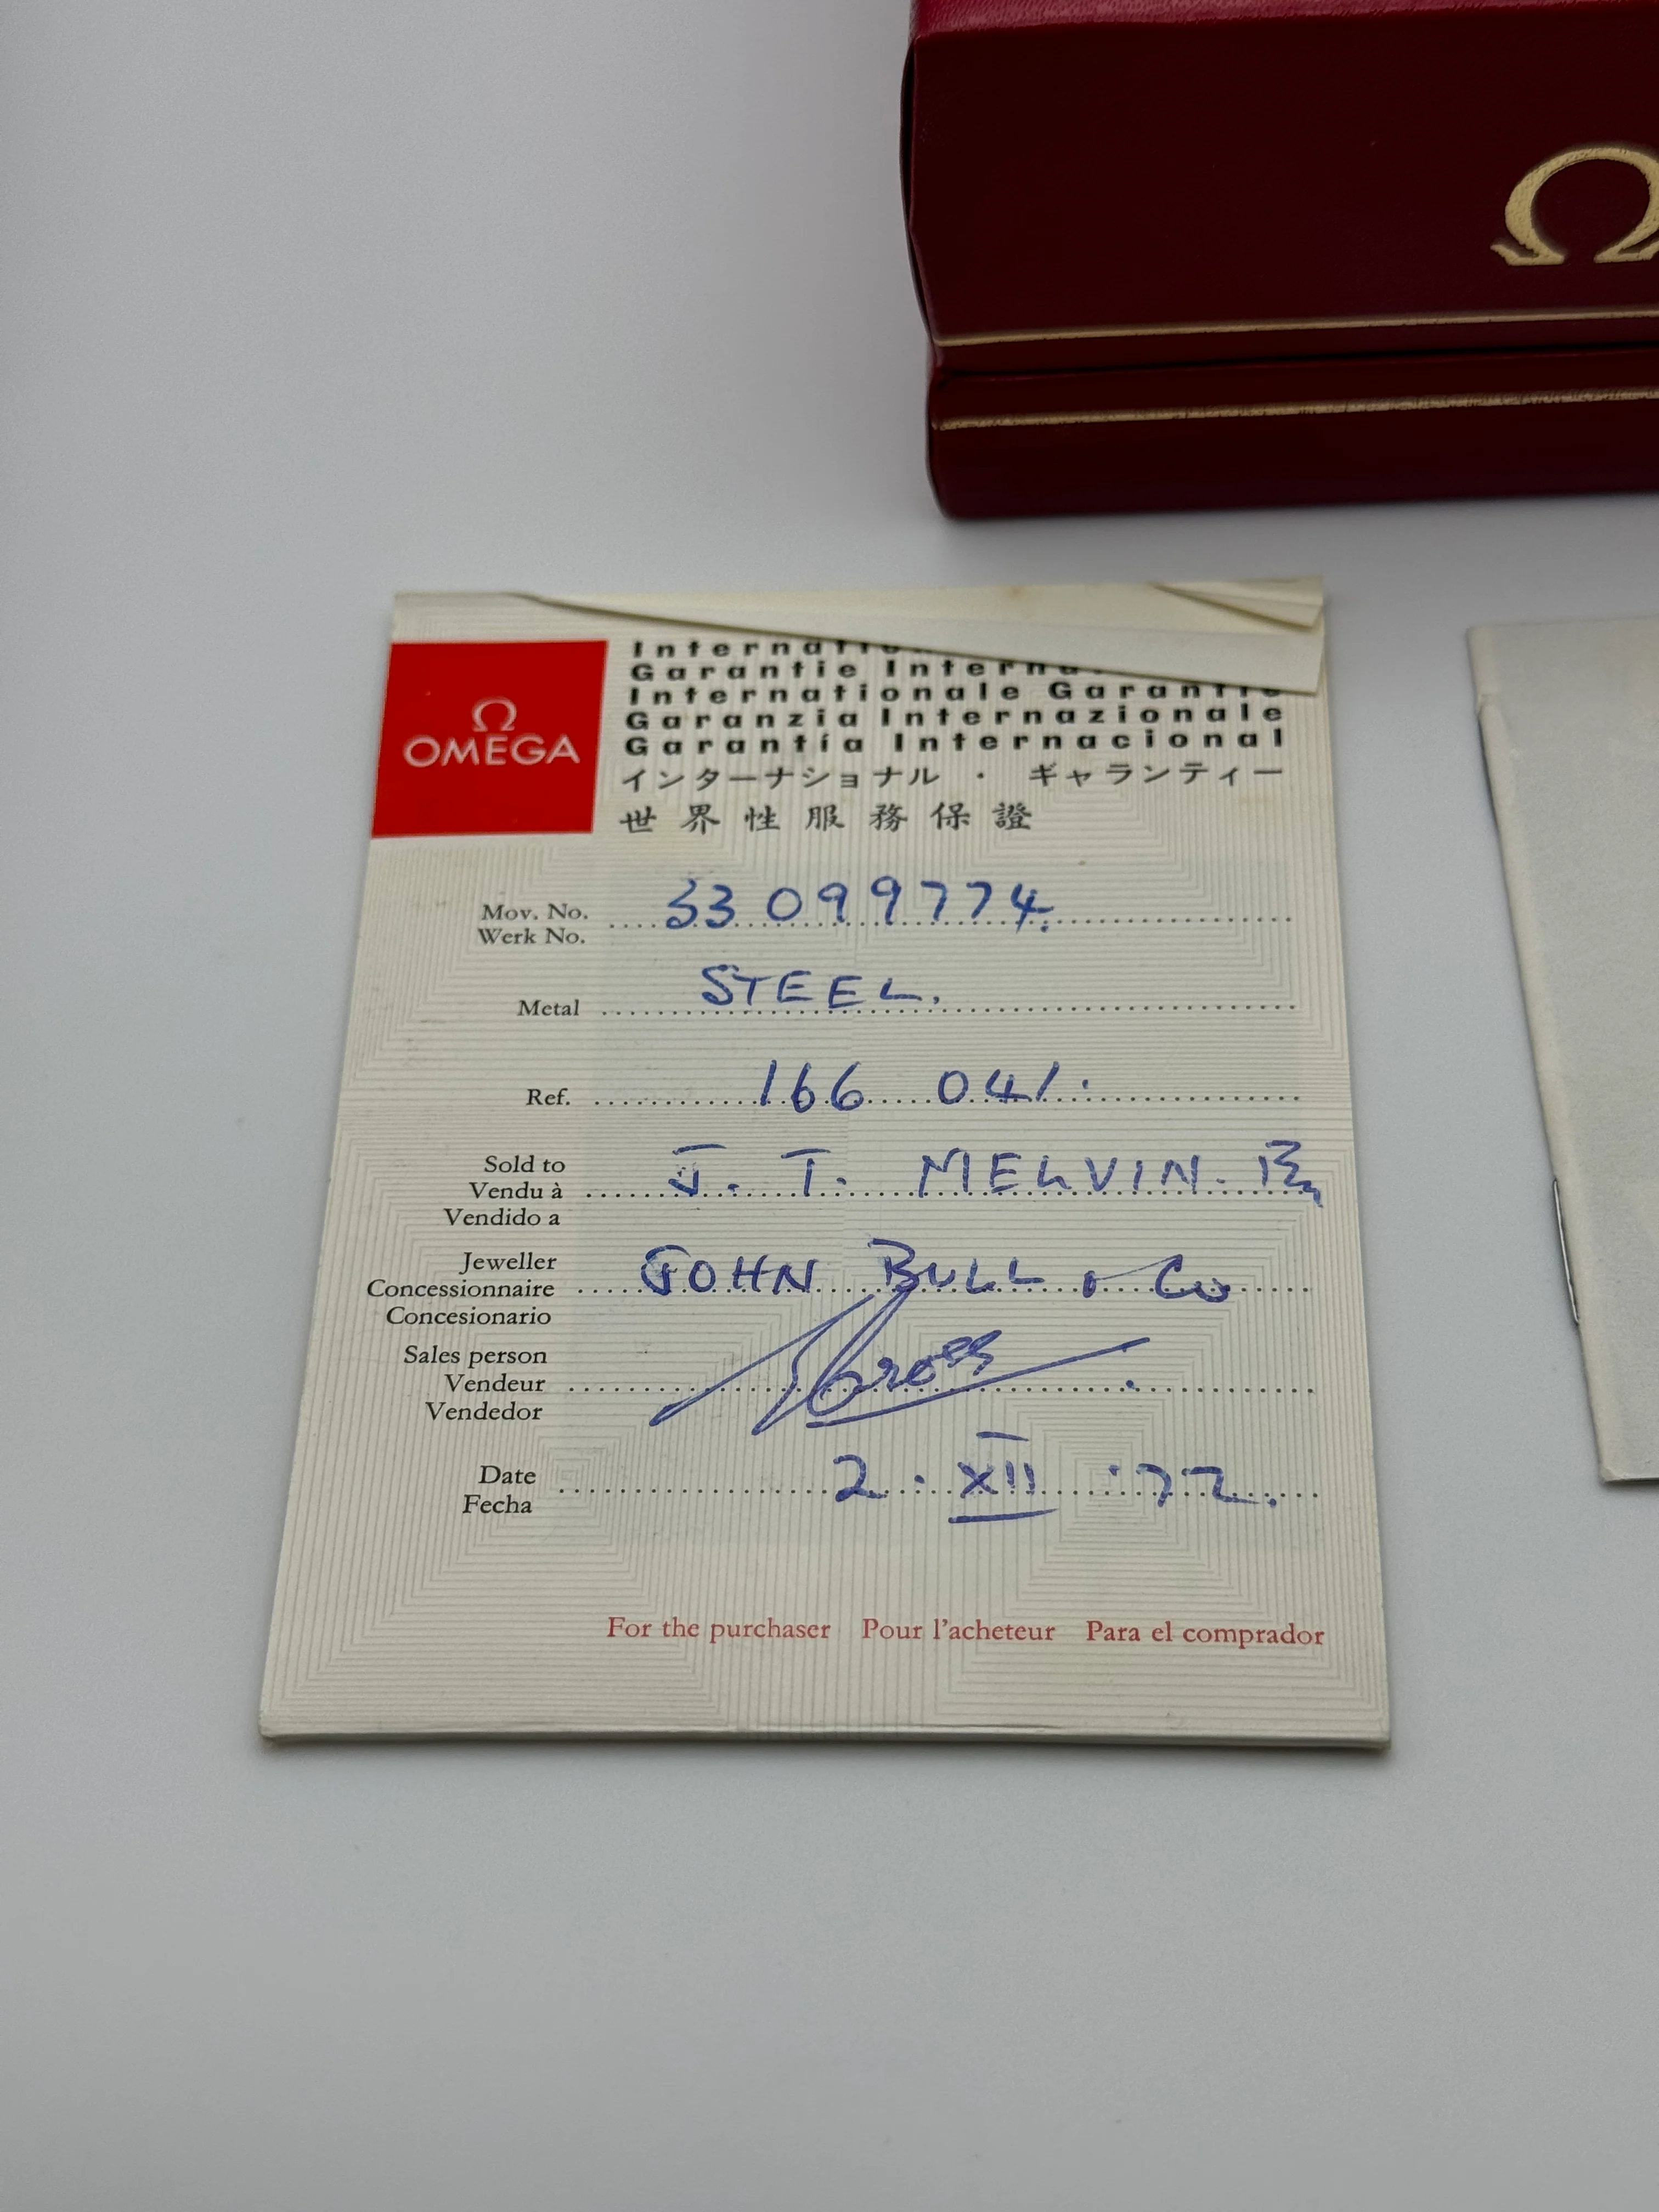 Ω
Ω
OMEGA
Garantie
Internationale Garantie
Garanzia Internazionale
Garantía Internacional
インターナショナル ・ ギャランティー
世界性服務保證
Mov. No. 33 099774.
Werk No.
Metal STEEL.
Ref. 166 041.
Sold to J. T. MELVIN.
Vendu à
Vendido a
Jeweller JOHN BULL & Co
Concessionnaire
Concesionario
Sales person
Vendeur
Vendedor
Date 2 · XII · 72.
Fecha
For the purchaser Pour l'acheteur Para el comprador